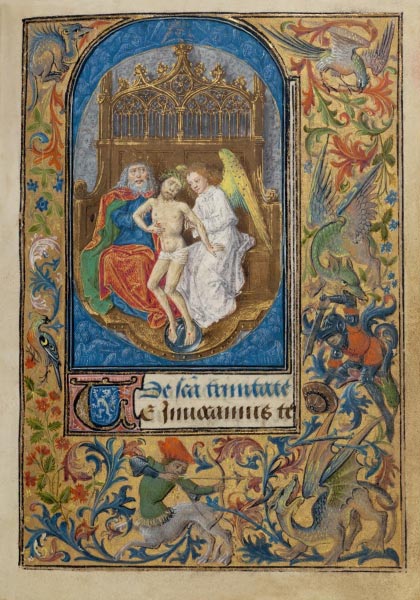 De sc̄a trinitate
TE Inuocamus te